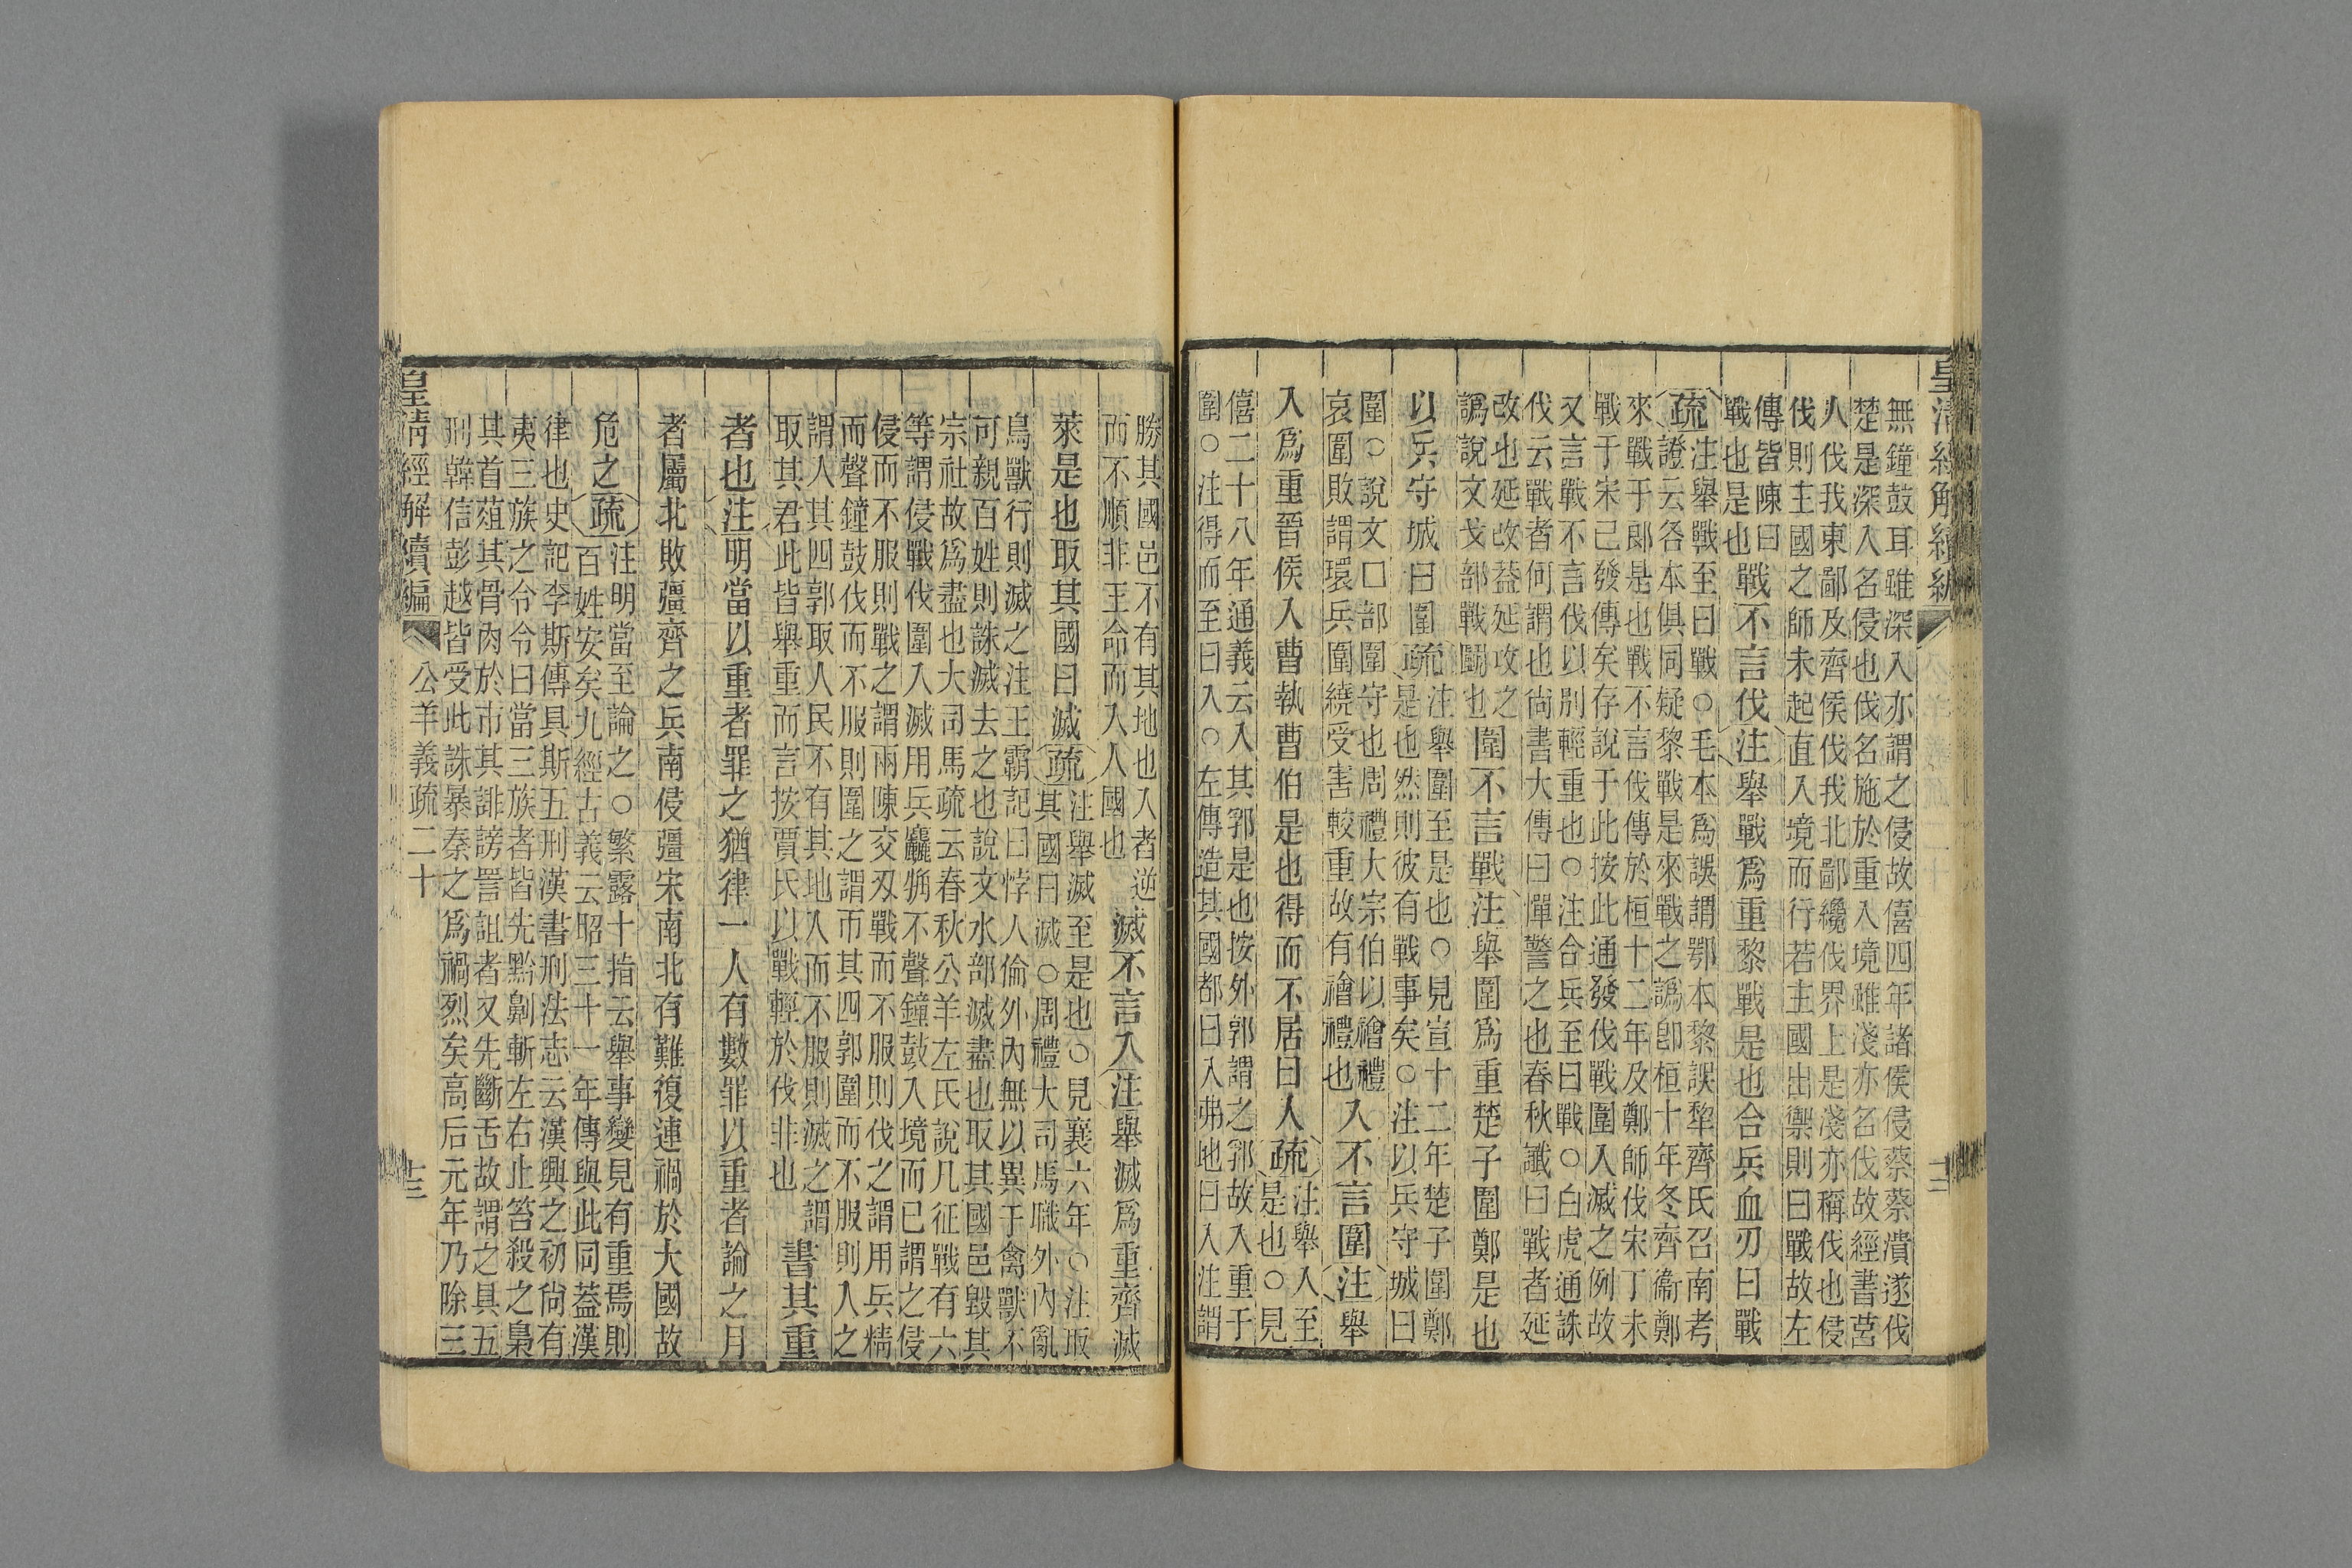 皇清經解續編
無鐘鼓耳雖深入亦謂之侵故僖四年諸侯侵蔡蔡潰遂伐
楚是深入名侵也伐名施於重入境雖淺亦名伐故經書莒
人伐我東鄙及齊侯伐我北鄙纔伐界上是淺亦稱伐也侵
伐則主國之師未起直入境而行若主國出禦則曰戰故左
傳皆陳曰
戰也是也
戰不言伐注舉戰爲重黎戰是也合兵血刃曰戰
疏
注舉戰至曰戰○毛本爲誤謂鄂本黎誤犂齊氏召南考
證云各本俱同疑黎戰是來戰之譌卽桓十年冬齊衞鄭
來戰于郎是也戰不言伐傳於桓十二年及鄭師伐宋丁未
戰于宋已發傳矣存說于此按此通發伐戰圍入滅之例故
又言戰不言伐以別輕重也○注合兵至曰戰○白虎通誅
伐云戰者何謂也尙書大傳曰憚警之也春秋讖曰戰者延
改也延改益延攻之
譌說文戈部戰鬭也
圍不言戰注舉圍爲重楚子圍鄭是也
以兵守城曰圍疏
注舉圍至是也○見宣十二年楚子圍鄭
是也然則彼有戰事矣○注以兵守城曰
圍○說文囗部圍守也周禮大宗伯以禬禮
哀圍敗謂環兵圍繞受害較重故有禬禮也
入不言圍注舉
入爲重晉侯入曹執曹伯是也得而不居曰入疏
注舉入至
是也○見
僖二十八年通義云入其郛是也按外郭謂之郛故入重于
圍○注得而至曰入○左傳造其國都曰入弗地曰入注謂
勝其國邑不有其地也入者逆
而不順非王命而入人國也
滅不言入注舉滅爲重齊滅
萊是也取其國曰滅疏
注舉滅至是也○見襄六年○注取
其國曰滅○周禮大司馬職外內亂
鳥獸行則滅之注王霸記曰悖人倫外內無以異于禽獸不
可親百姓則誅滅去之也說文水部滅盡也取其國邑毀其
宗社故爲盡也大司馬疏云春秋公羊左氏說凡征戰有六
等謂侵戰伐圍入滅用兵麤觕不聲鐘鼓入境而已謂之侵
侵而不服則戰之謂兩陳交刃戰而不服則伐之謂用兵精
而聲鐘鼓伐而不服則圍之謂帀其四郭圍而不服則入之
謂人其四郭取人民不有其地入而不服則滅之謂
取其君此皆舉重而言按賈氏以戰輕於伐非也
書其重
者也注明當以重者罪之猶律一人有數罪以重者論之月
者屬北敗彊齊之兵南侵彊宋南北有難復連禍於大國故
危之疏
注明當至論之○繁露十指云舉事變見有重焉則
百姓安矣九經古義云昭三十一年傳與此同蓋漢
律也史記李斯傳具斯五刑漢書刑法志云漢興之初尙有
夷三族之令令曰當三族者皆先黥劓斬左右止笞殺之梟
其首葅其骨肉於市其誹謗詈詛者又先斷舌故謂之具五
刑韓信彭越皆受此誅暴秦之爲禍烈矣高后元年乃除三
皇清經解續編
公羊義疏二十
十三